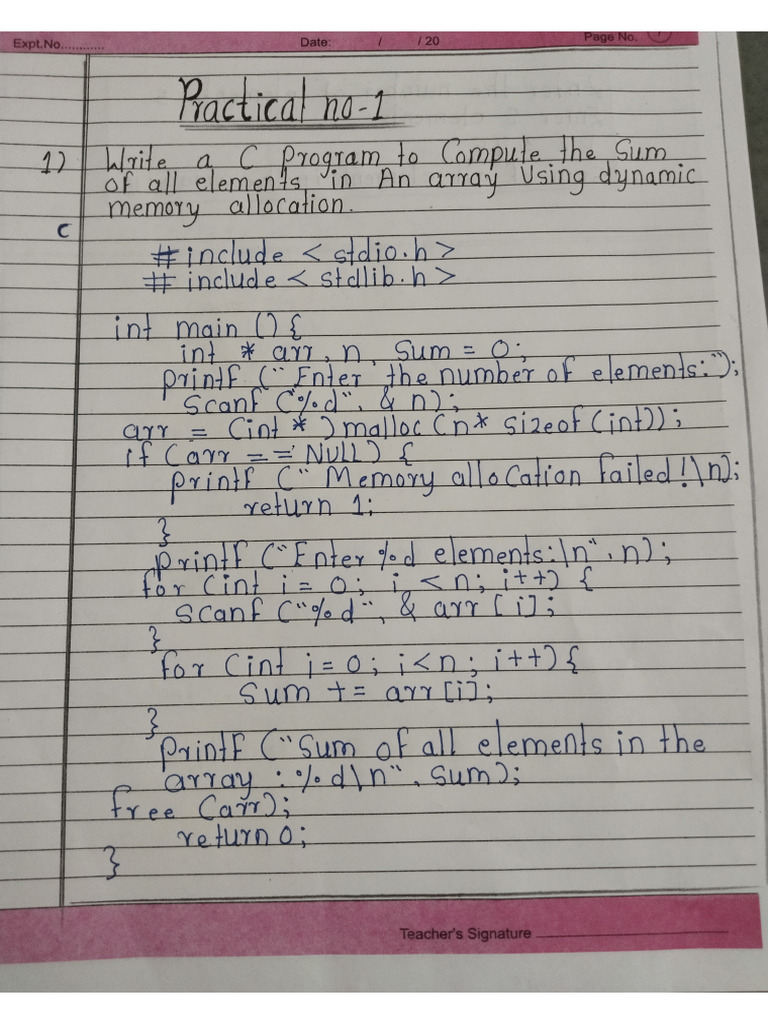 Expt.No............ Date: / / 20 Page No. 1
Practical no-1
1) Write a C Program to Compute the Sum
of all elements in An array Using dynamic
memory allocation.
C
# include < stdio.h >
# include < stdlib.h >
int main () {
int * arr, n, Sum = 0;
printf ("Enter the number of elements:");
Scanf ("%d", & n);
arr = (int * ) malloc (n* sizeof (int));
if (arr == NULL) {
printf (" Memory allocation failed!\n);
return 1;
}
printf ("Enter %d elements:\n", n);
for (int i = 0; i < n; i++) {
Scanf ("%d", & arr [i];
}
for (int i = 0; i < n; i++) {
Sum += arr [i];
}
printf ("Sum of all elements in the
array : %d\n", Sum);
free (arr);
return 0;
}
Teacher's Signature